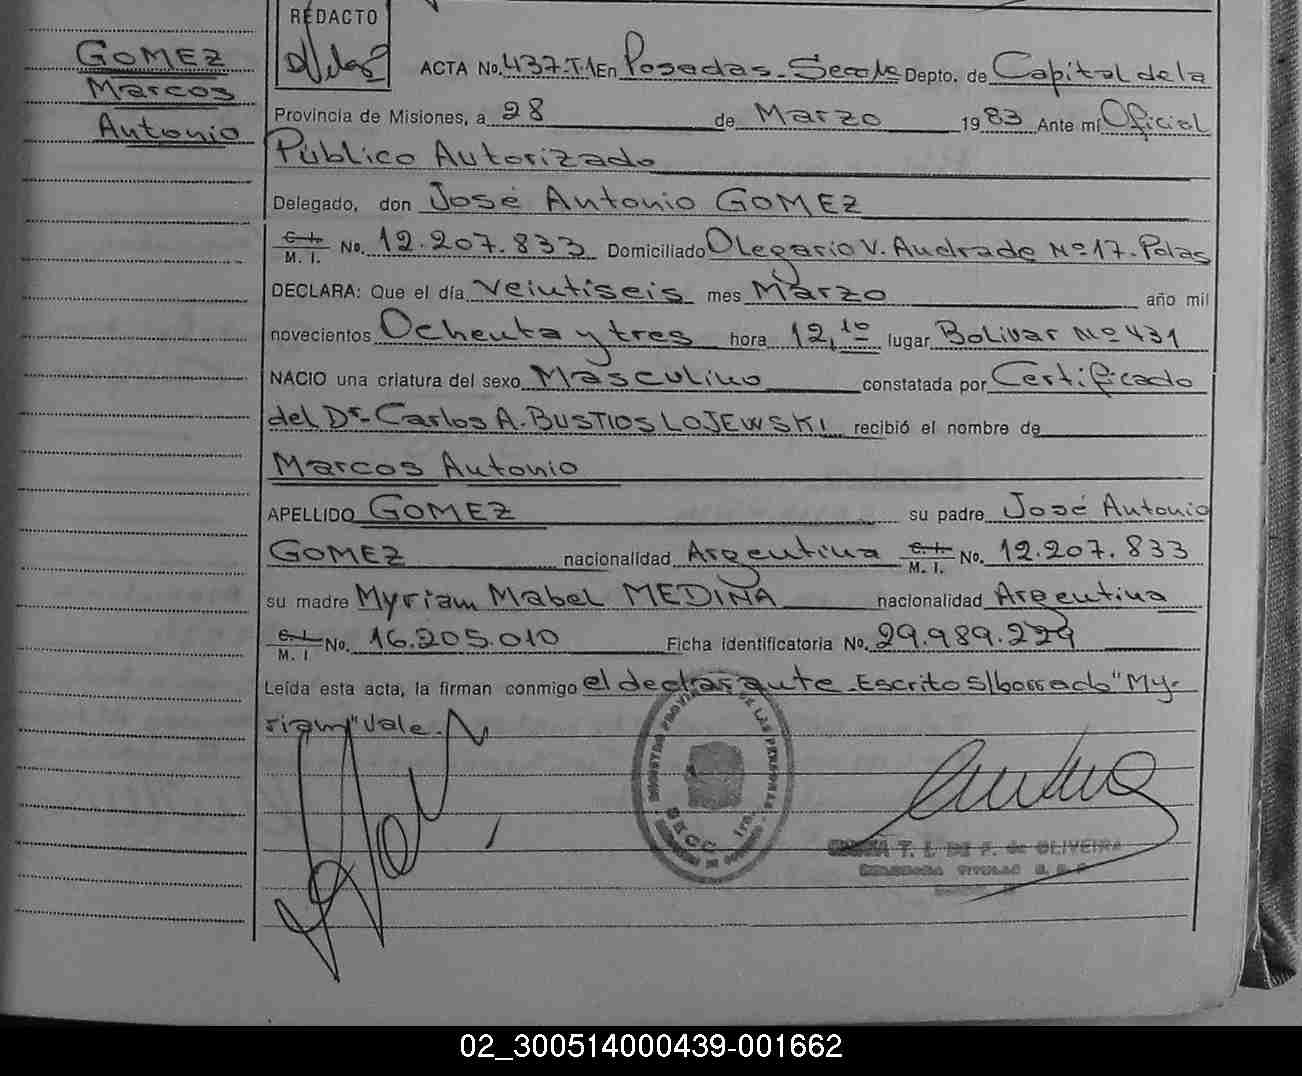 REDACTO
GOMEZ
Marcos
Antonio
ACTA No. 437-T-1 En Posadas-Secc Depto. de Capital de la
Provincia de Misiones, a 28 de Marzo 1983 Ante mí Oficial
Público Autorizado
Delegado, don José Antonio GOMEZ
C. I. M. I. No. 12.207.833 Domiciliado Olegario V. Andrade Nº 17-Pdas
DECLARA: Que el día veintiseis mes Marzo año mil
novecientos Ochenta y tres hora 12,10 lugar Bolivar Nº 431
NACIO una criatura del sexo Masculino constatada por Certificado
del Dr. Carlos A. BUSTIOS LOJEWSKI recibió el nombre de
Marcos Antonio
APELLIDO GOMEZ su padre José Antonio
GOMEZ nacionalidad Argentina C. I. M. I. No. 12.207.833
su madre Myriam Mabel MEDINA nacionalidad Argentina
C. I. M. I No. 16.205.010 Ficha identificatoria No. 29.989.229
Leída esta acta, la firman conmigo el declarante. Escrito s/borrado "My-
riam" Vale.
REGISTRO PROVINCIAL DE LAS PERSONAS
SECC. 1ra.
T. I. DE F. de OLIVEIRA
TITULAR
02_300514000439-001662